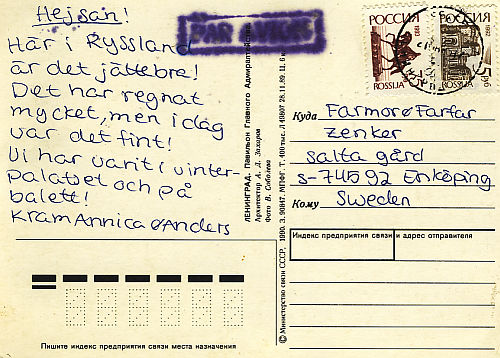 Hejsan!
Här i Ryssland
är det jättebra!
Det har regnat
mycket, men idag
var det fint!
Vi har varit i vinter-
palatset och på
balett!
Kram Annica & Anders
PAR AVION
ЛЕНИНГРАД. Павильон Главного Адмиралтейства
Архитектор А. Д. Захаров
Фото В. Соболева
© Министерство связи СССР, 1990. З. 90847. МПФГ. Т. 400 тыс. Л 49807 28.11.89. Ц. 6 к.
РОССИЯ
1992
ROSSIJA
РОССИЯ
1992
ROSSIJA
Куда Farmor & Farfar
Zenker
Salta gård
S-74592 Enköping
Кому Sweden
Индекс предприятия связи и адрес отправителя
Пишите индекс предприятия связи места назначения